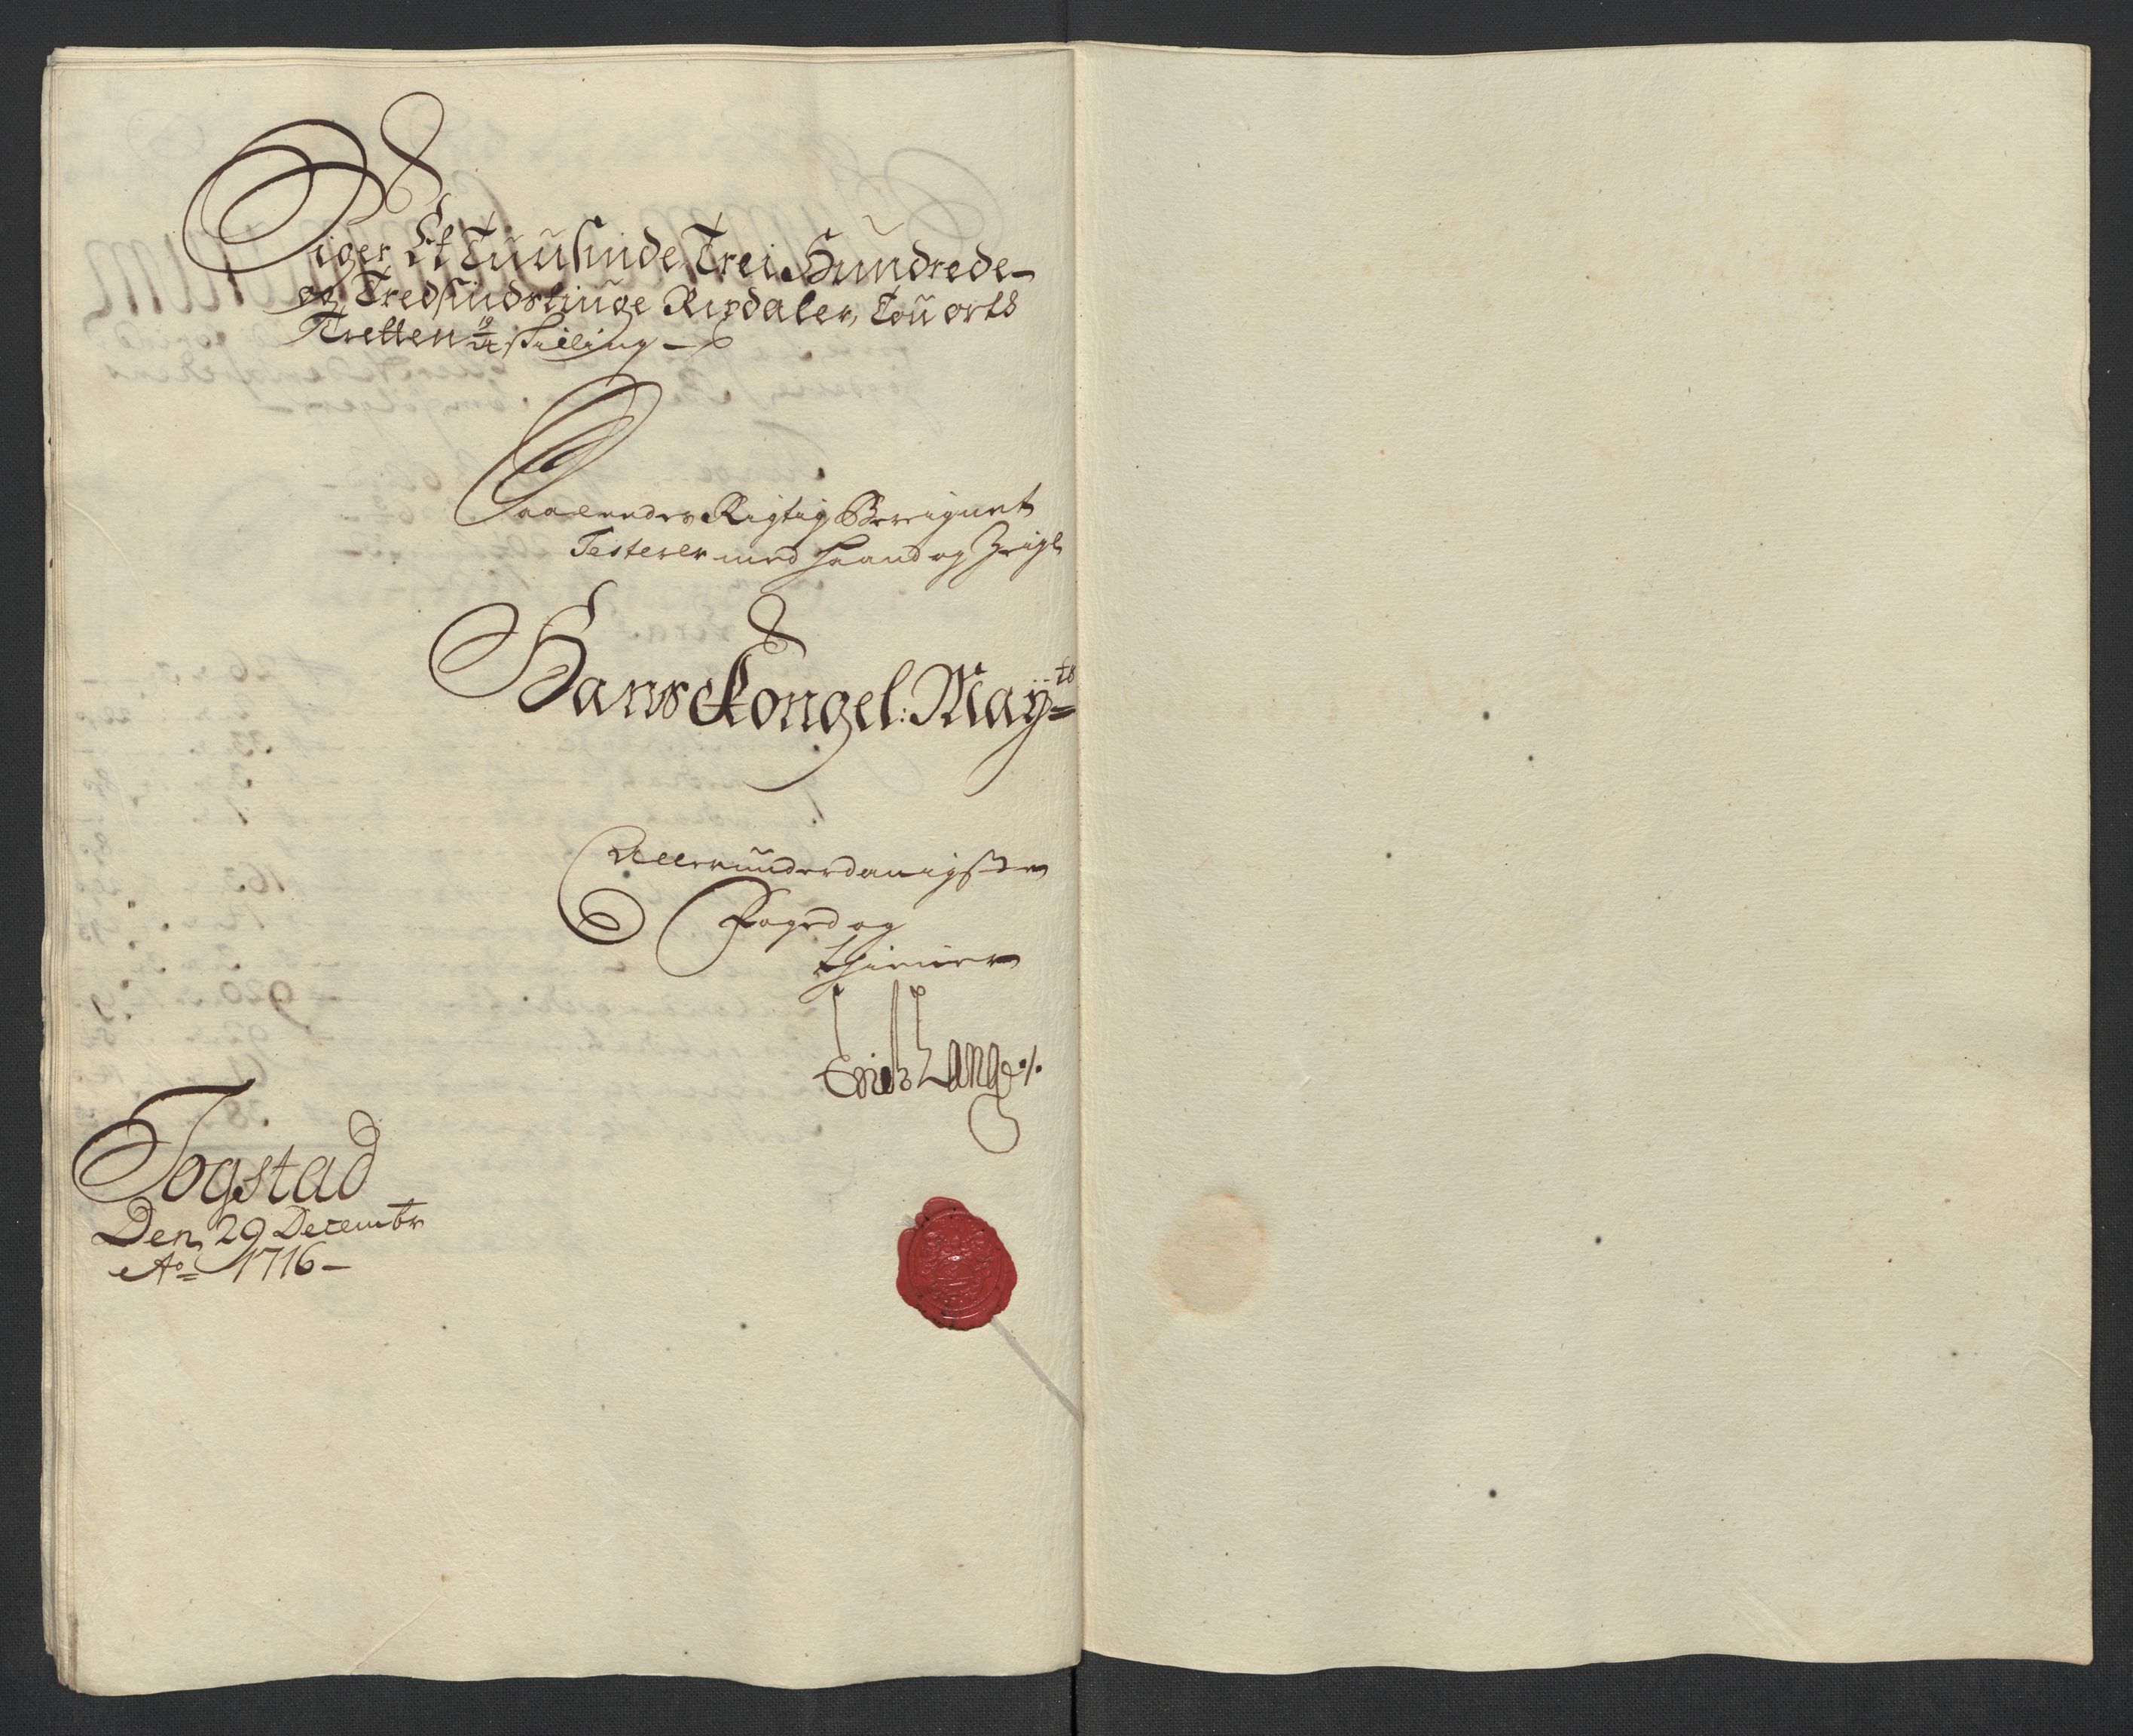 Siger Et Tuusinde Trei Hundrede
og Tredsindstiuge Rixdaler, Tou orts
Tretten 19/24 skilling
Saaledes Rigtig Berignet
Testerer med Haand og Zeigl
Hans Kongel: Mayts
Allerunderdanigste
Foged og
thiener
Erich Lange
Togstad
Den 29 Decembr
Ao 1716